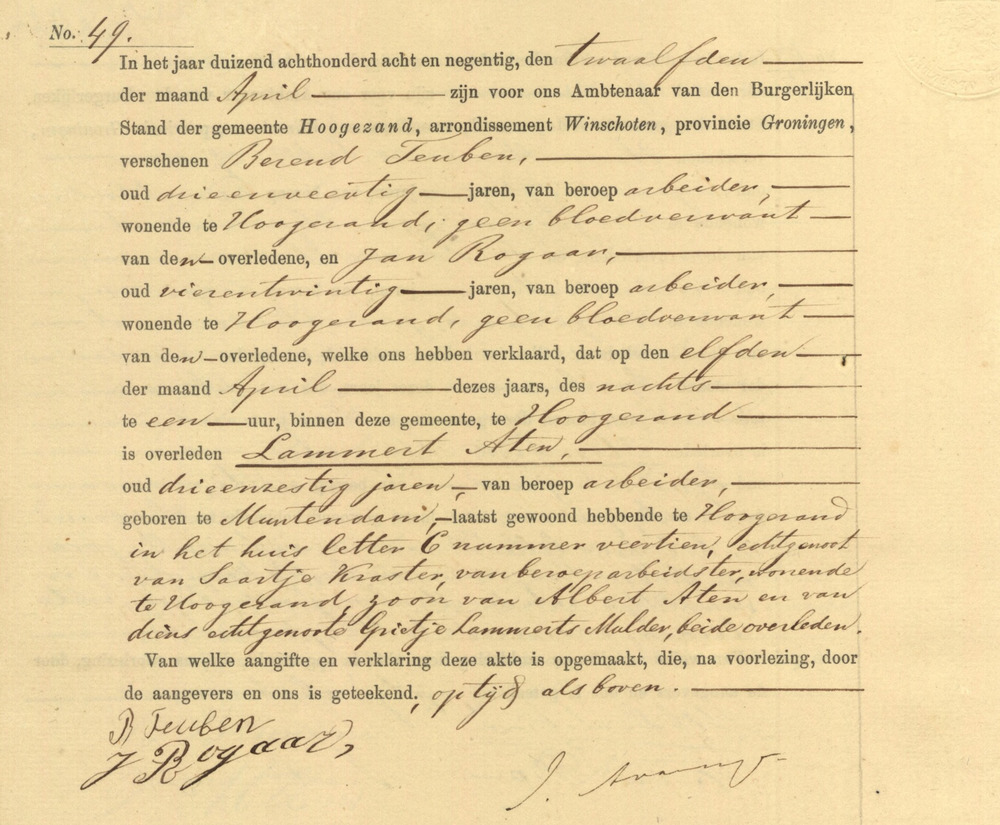 No. 49.
In het jaar duizend achthonderd acht en negentig, den twaalfden
der maand April zijn voor ons Ambtenaar van den Burgerlijken
Stand der gemeente Hoogezand, arrondissement Winschoten, provincie Groningen,
verschenen Berend Teuben,
oud drieenveertig jaren, van beroep arbeider,
wonende te Hoogezand, geen bloedverwant
van den overledene, en Jan Rogaar,
oud vierentwintig jaren, van beroep arbeider,
wonende te Hoogezand, geen bloedverwant
van den overledene, welke ons hebben verklaard, dat op den elfden
der maand April dezes jaars, des nachts
te een uur, binnen deze gemeente, te Hoogezand
is overleden Lammert Aten,
oud drieenzestig jaren, van beroep arbeider,
geboren te Muntendam, laatst gewoond hebbende te Hoogezand
in het huis letter C nummer veertien, echtgenoot
van Saartje Kraster, van beroep arbeidster, wonende
te Hoogezand, zoon van Albert Aten en van
diens echtgenoote Grietje Lammerts Mulder, beide overleden.
Van welke aangifte en verklaring deze akte is opgemaakt, die, na voorlezing, door
de aangevers en ons is geteekend, op tijd als boven.
B Teuben
J Rogaar,
J.